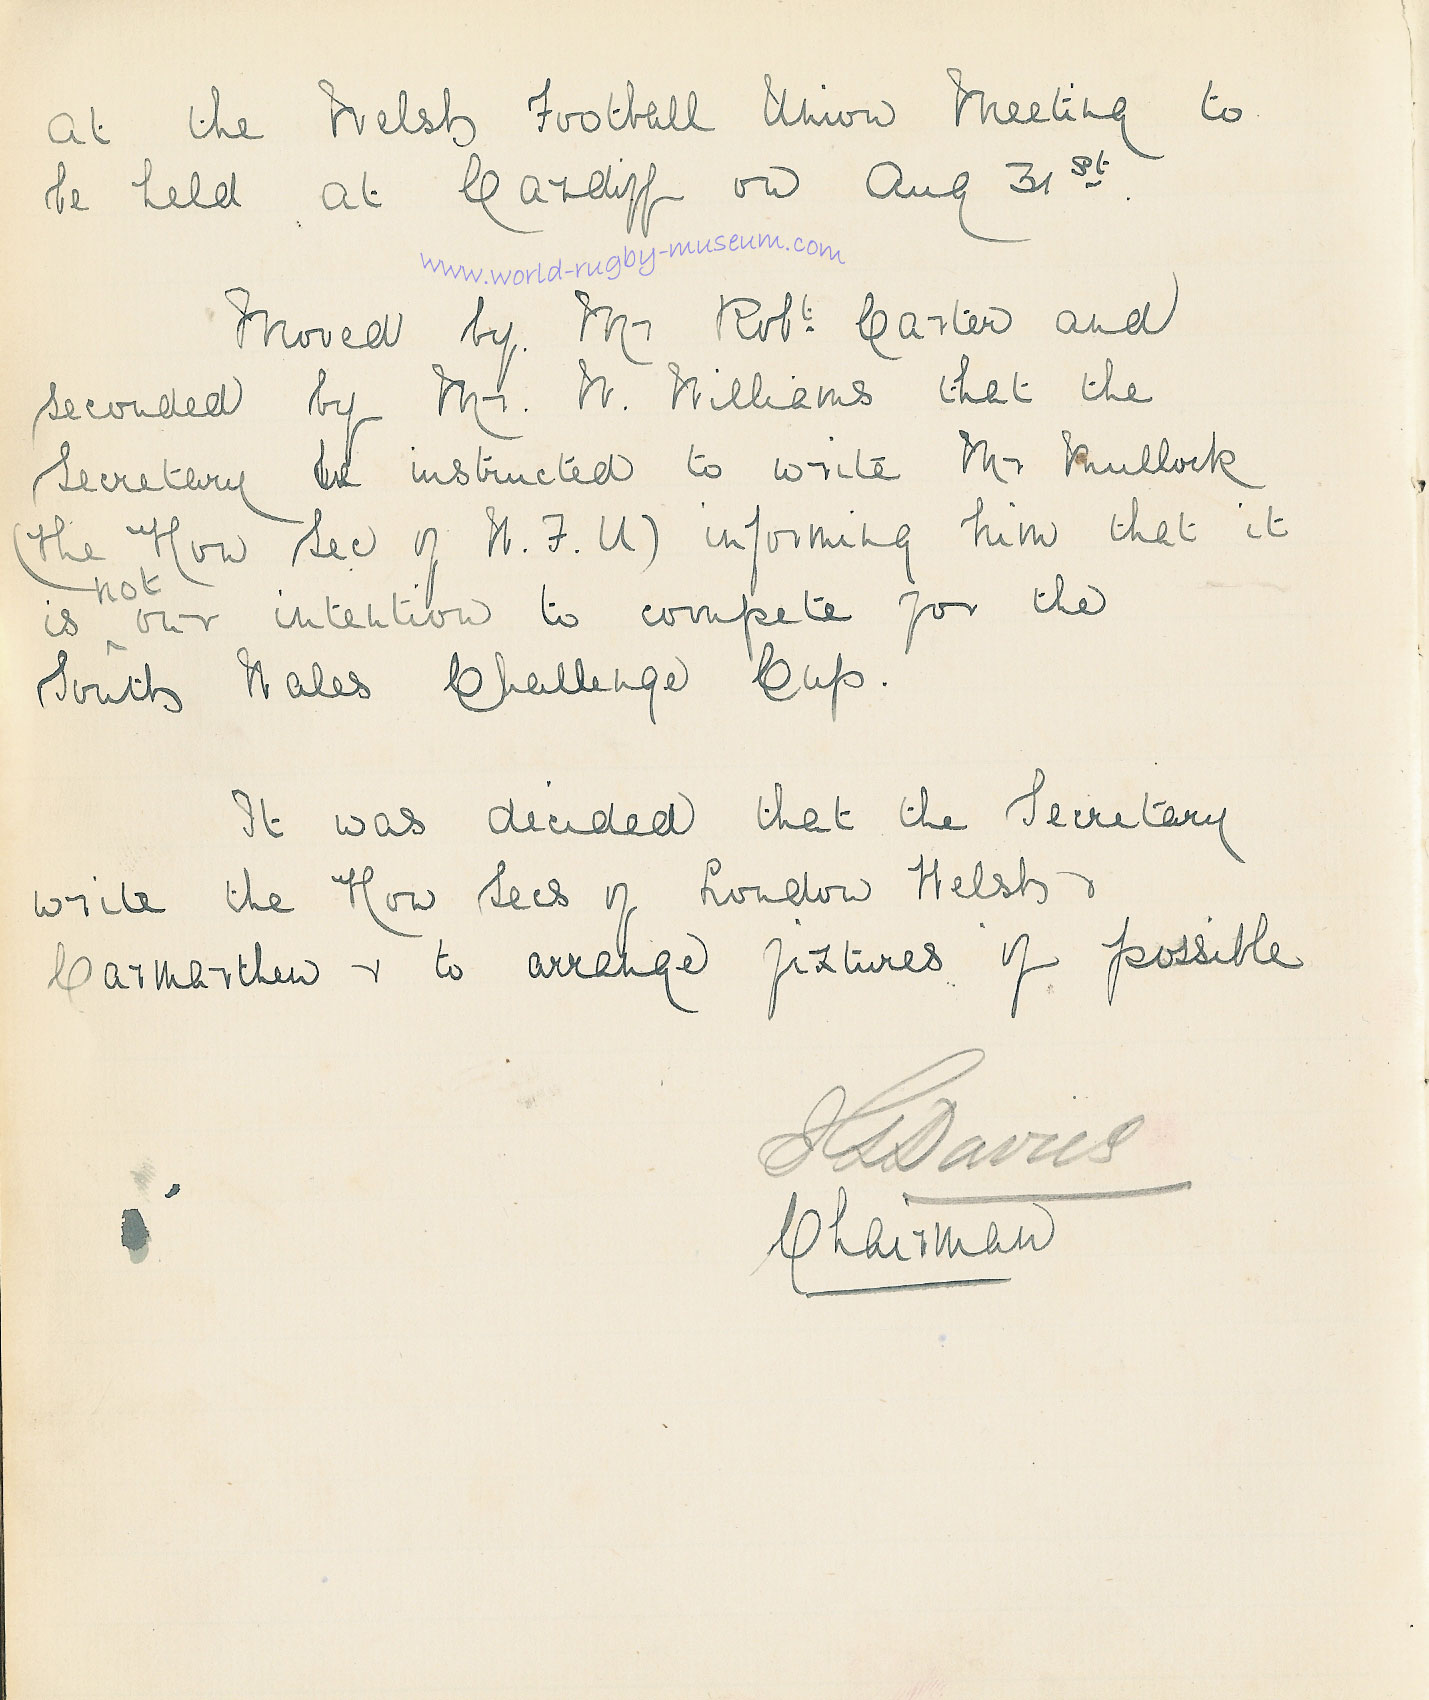 at the Welsh Football Union Meeting to
be held at Cardiff on Aug 31st.
www.world-rugby-museum.com
Moved by. Mr Robt. Carter and
seconded by Mr. W. Williams that the
Secretary be instructed to write Mr Mullock
(the Hon Sec of W.F.U) informing him that it
is not our intention to compete for the
South Wales Challenge Cup.
It was decided that the Secretary
write the Hon Secs of London Welsh &
Carmarthen & to arrange fixtures if possible
Davies
Chairman